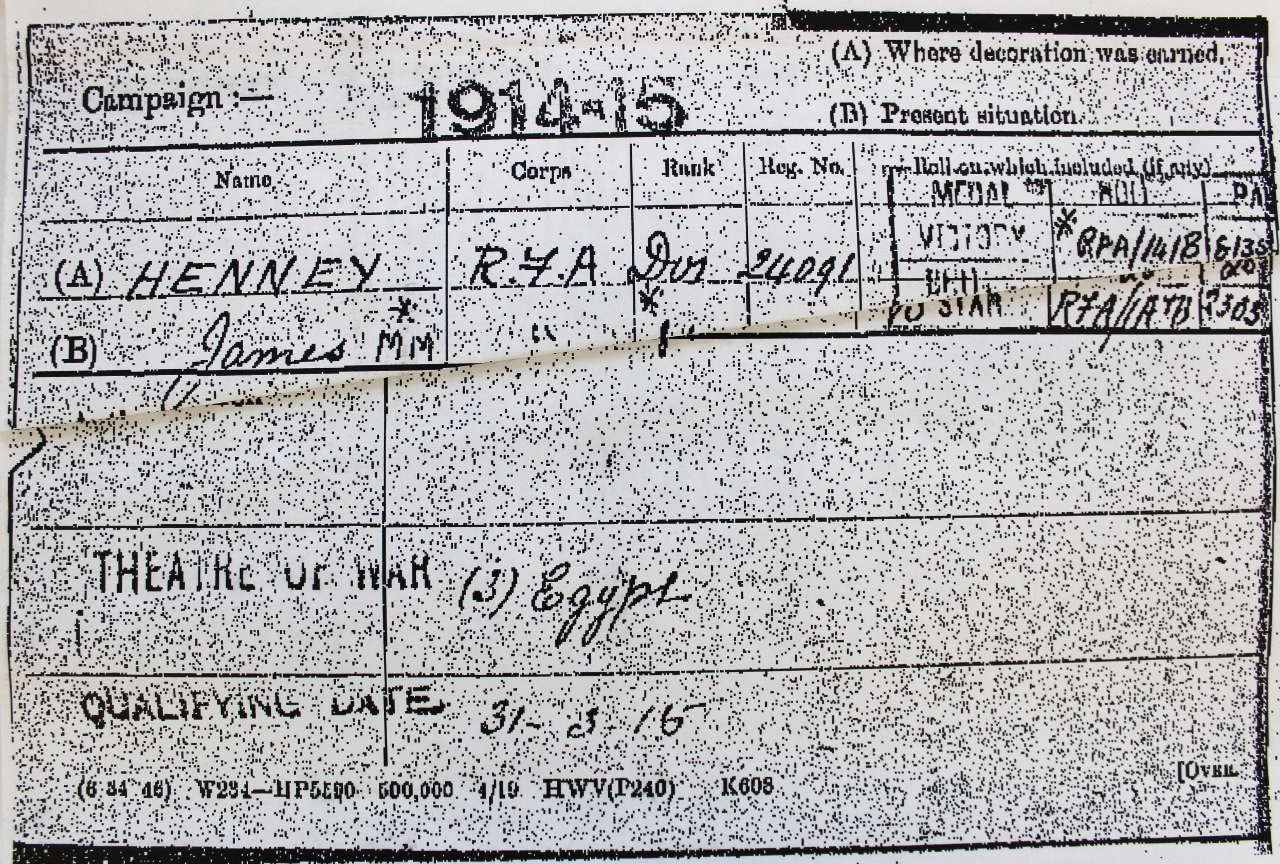 (A) Where decoration was earned.
Campaign :— 1914-15
(B) Present situation.
Name Corps Rank Reg. No. Roll on which included (if any)
MEDAL ROLL PA
VICTORY * 6135
(A) HENNEY R.F.A Dvr 24091
*
STAR 7305
(B) James MM " "
THEATRE OF WAR (3) Egypt
QUALIFYING DATE 31-3-15
[OVER.
(6 34 46) W234—HP5590 500,000 4/19 HWV(P240) K608